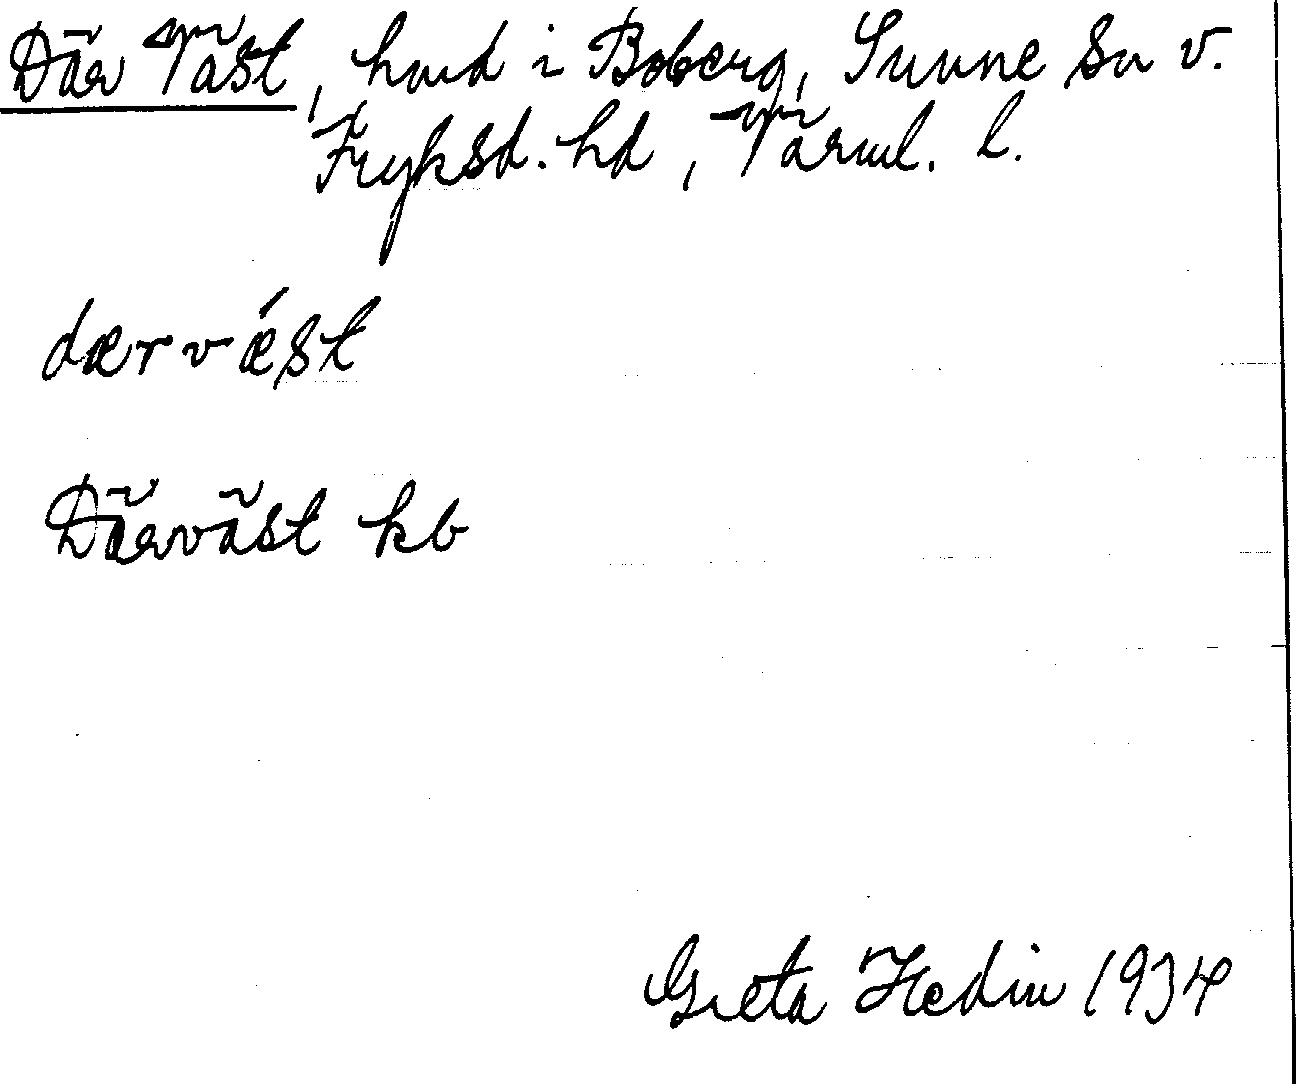 Där Väst, hmd i Boberg, Sunne sn v.
Fryksd. hd, Värml. l.
dærvǽst
Därväst kb
Greta Hedin 1934